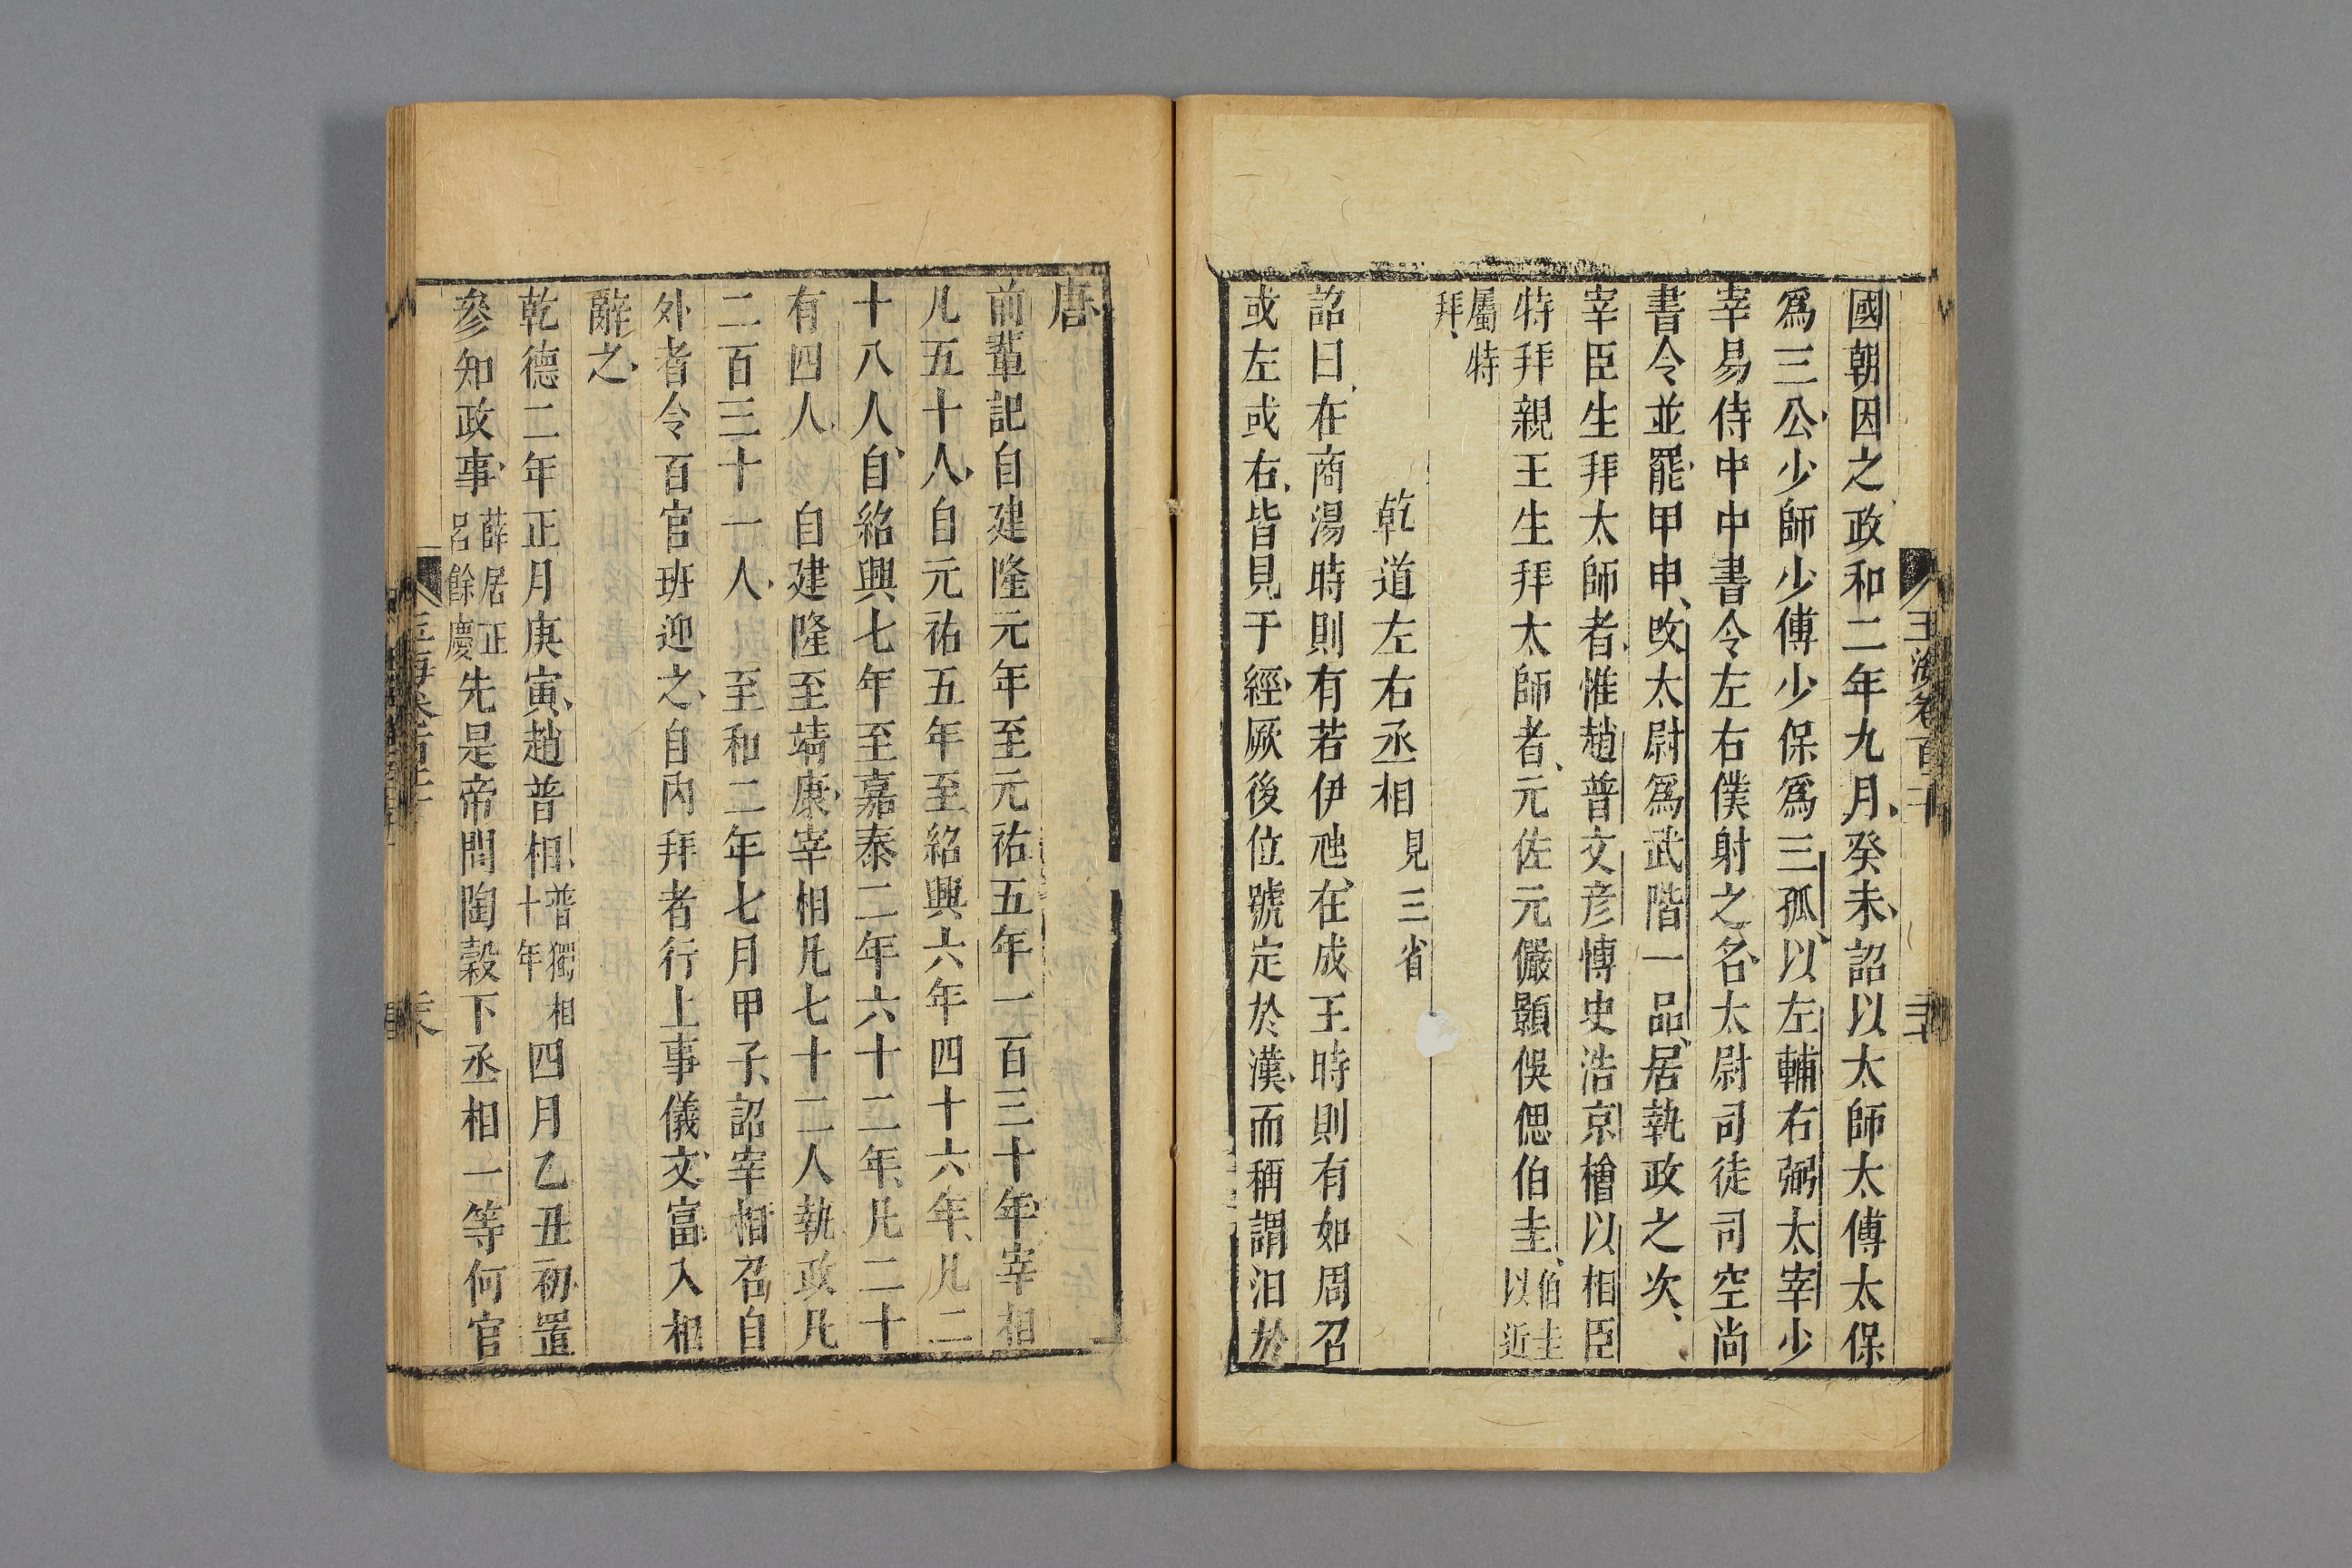 國朝因之政和二年九月癸未詔以太師太傅太保
爲三公少師少傅少保爲三孤以左輔右弼太宰少
宰易侍中中書令左右僕射之名太尉司徒司空尚
書令並罷甲申改太尉爲武階一品居執政之次
宰臣生拜太師者惟趙普文彥博史浩京檜以相臣
特拜親王生拜太師者元佐元儼顥俁偲伯圭伯圭以近
屬特拜
乾道左右丞相見三省
詔曰在商湯時則有若伊虺在成王時則有如周召
或左或右皆見于經厥後位號定於漢而稱謂汨於
唐
前輩記自建隆元年至元祐五年一百三十年宰相
凡五十人自元祐五年至紹興六年四十六年凡二
十八人自紹興七年至嘉泰二年六十二年凡二十
有四人 自建隆至靖康宰相凡七十二人執政凡
二百三十一人 至和二年七月甲子詔宰相召自
外者令百官班迎之自內拜者行上事儀文富入相
辭之
乾德二年正月庚寅趙普相普獨相十年四月乙丑初置
參知政事薛居正呂餘慶先是帝問陶穀下丞相一等何官